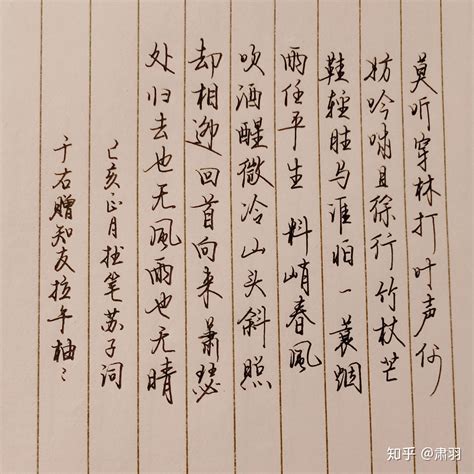 莫听穿林打叶声何
妨吟啸且徐行竹杖芒
鞋轻胜马谁怕一蓑烟
雨任平生 料峭春風
吹酒醒微冷山头斜照
却相迎回首向来萧瑟
处归去也无風雨也无晴
己亥正月拙笔苏子词
于右赠知友拉柚
知乎 @肃羽